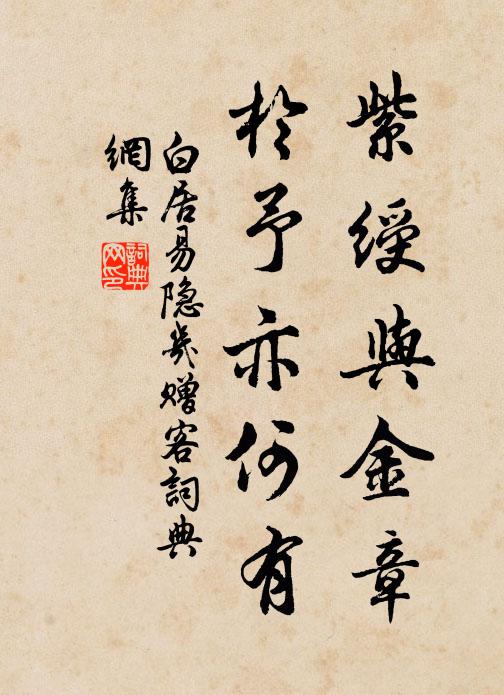 紫綬與金章
於予亦何有
白居易隐几赠客詞典
網集
詞典
网印